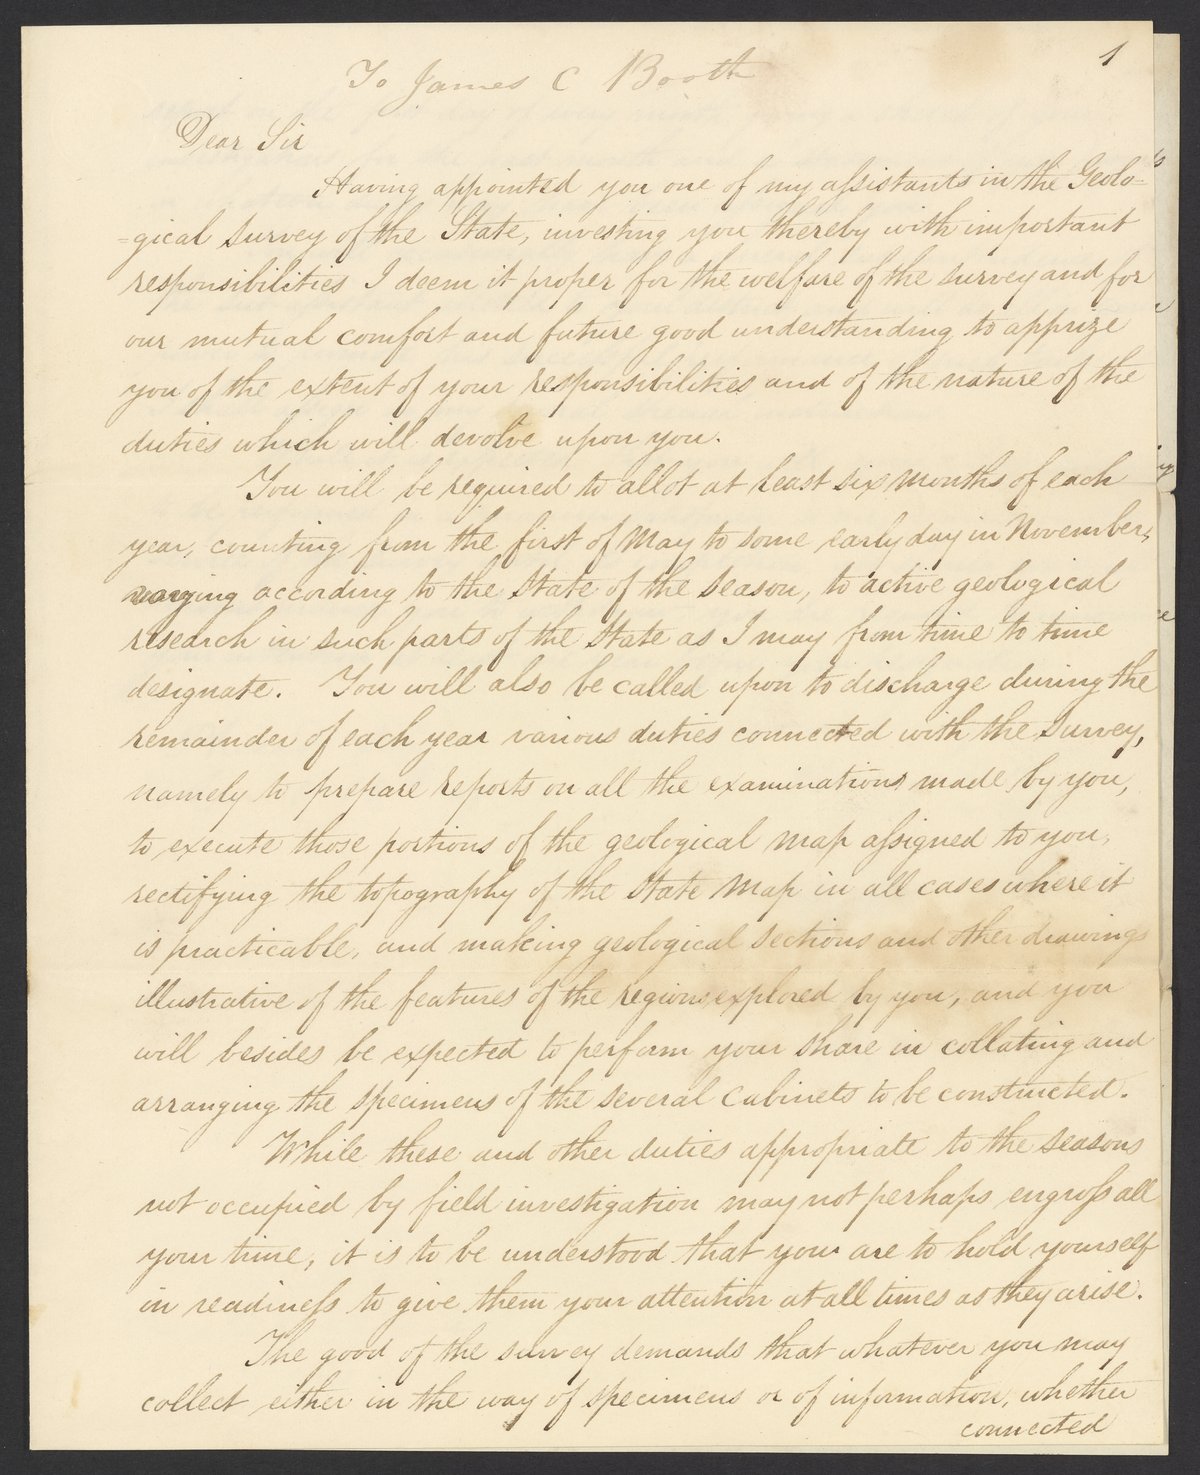 1
To James C Booth
Dear Sir
Having appointed you one of my aſsistants in the Geolo-
=gical Survey of the State, investing you thereby with important
responsibilities I deem it proper for the welfare of the survey and for
our mutual comfort and future good understanding to apprize
you of the extent of your responsibilities and of the nature of the
duties which will devolve upon you.
You will be required to allot at least six months of each
year, counting from the first of May to some early day in November,
varying according to the state of the season, to active geological
research in such parts of the State as I may from time to time
designate. You will also be called upon to discharge during the
remainder of each year various duties connected with the Survey,
namely to prepare reports on all the examinations made by you,
to execute those portions of the geological map aſsigned to you,
rectifying the topography of the State Map in all cases where it
is practicable, and making geological sections and other drawings
illustrative of the features of the regions explored by you, and you
will besides be expected to perform your share in collating and
arranging the specimens of the several Cabinets to be constructed.
While these and other duties appropriate to the seasons
not occupied by field investigation may not perhaps engroſs all
your time, it is to be understood that you are to hold yourself
in readineſs to give them your attention at all times as they arise.
The good of the survey demands that whatever you may
collect either in the way of specimens or of information, whether
connected